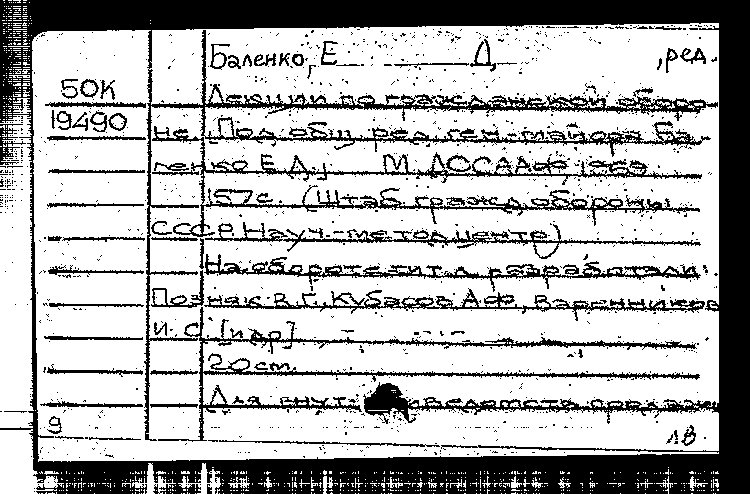 Баленко, Е Д, ,ред.
50К Лекции по гражданской оборо-
19490 не. Под общ. ред. ген.-майора Ба-
ленко Е.Д., М., ДОСААФ, 1969
157с. (Штаб гражд обороны
СССР. Науч.-метод. центр)
На обороте тит. л. разработали:
Позняк В.Г., Кубасов А.Ф., Варенников
И. С. [и др]
20 cm.
Для внутриведомств. продажи
9 лв.